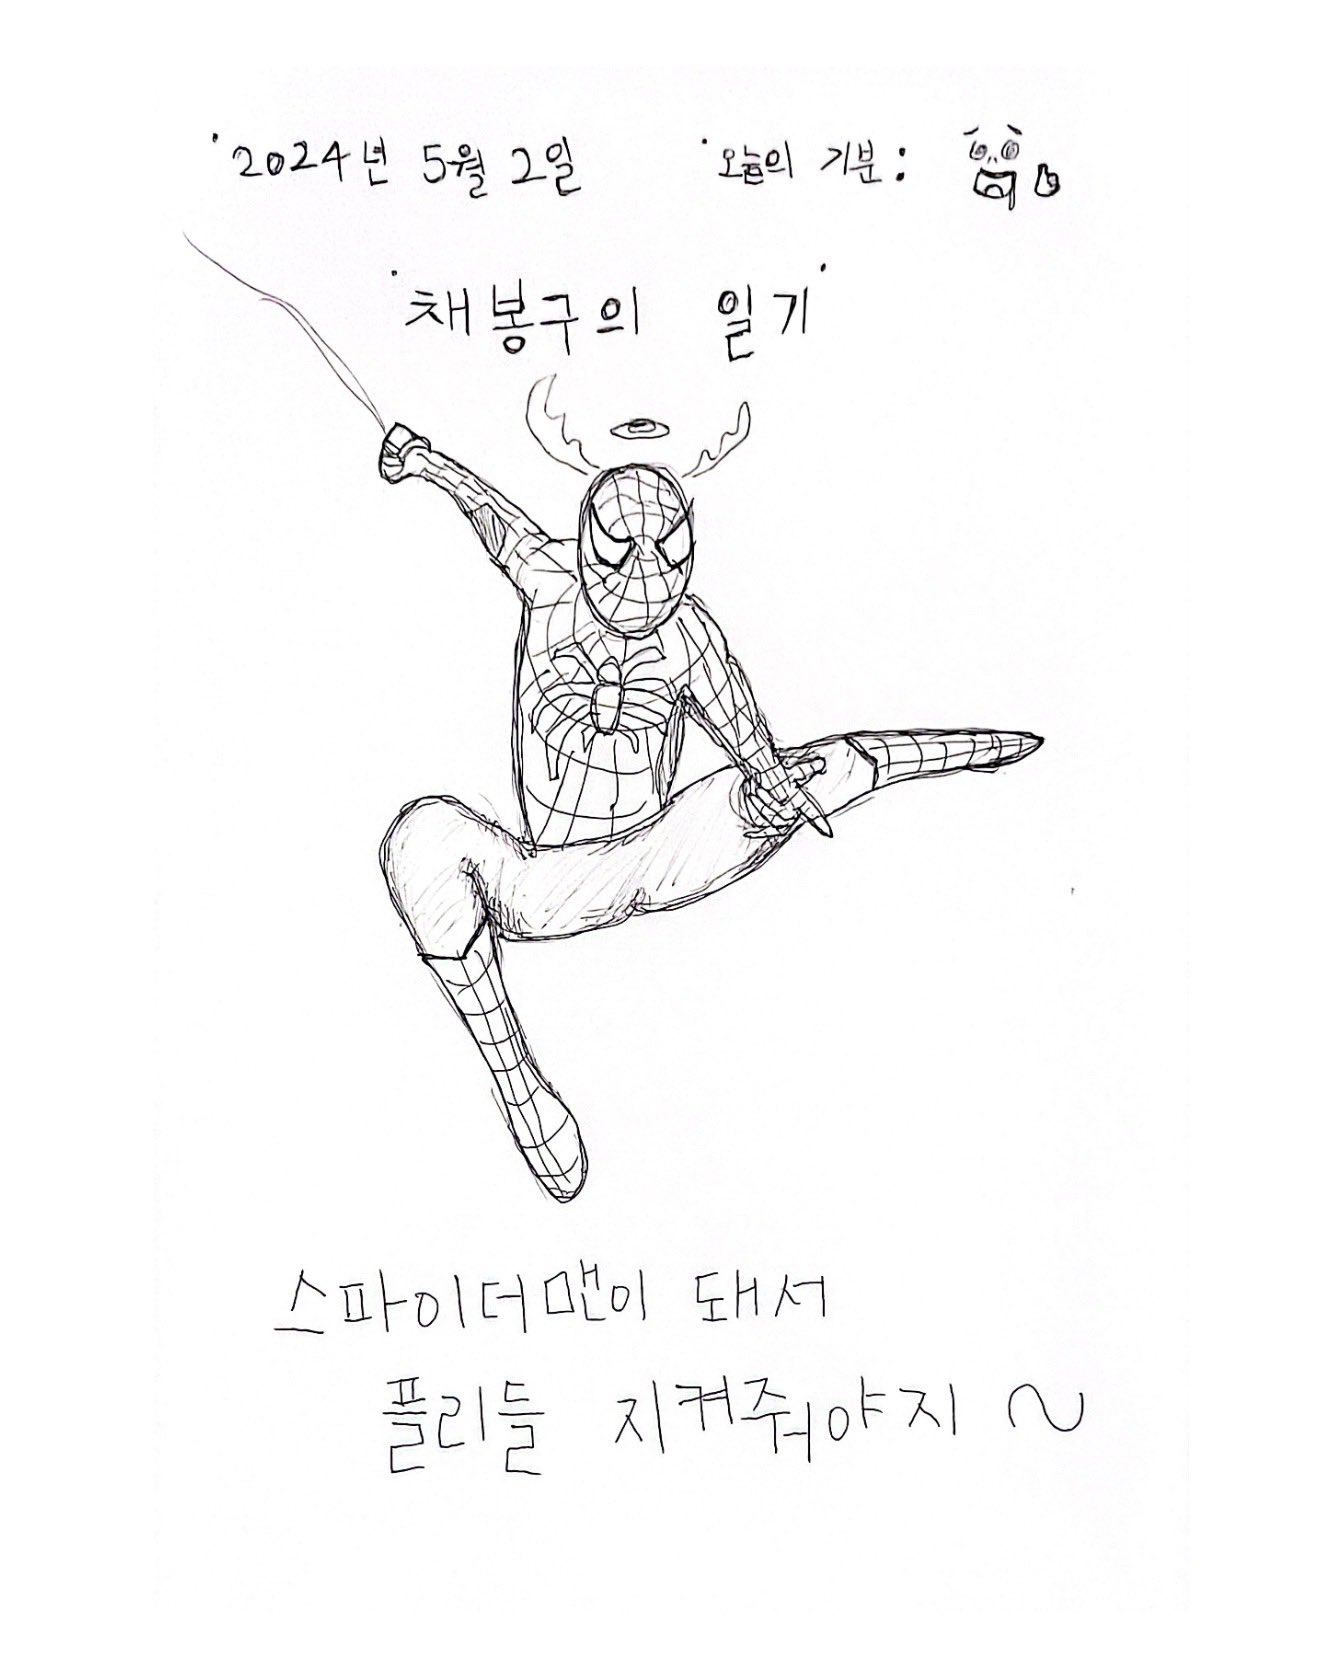 '2024년 5월 2일
'오늘의 기분 :
'채봉구의 일기'
스파이더맨이 돼서
플리들 지켜줘야지 ~